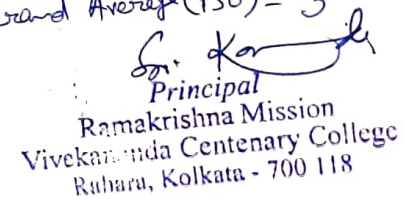 Grand Average (150) =
Principal
Ramakrishna Mission
Vivekananda Centenary College
Rahara, Kolkata - 700 118